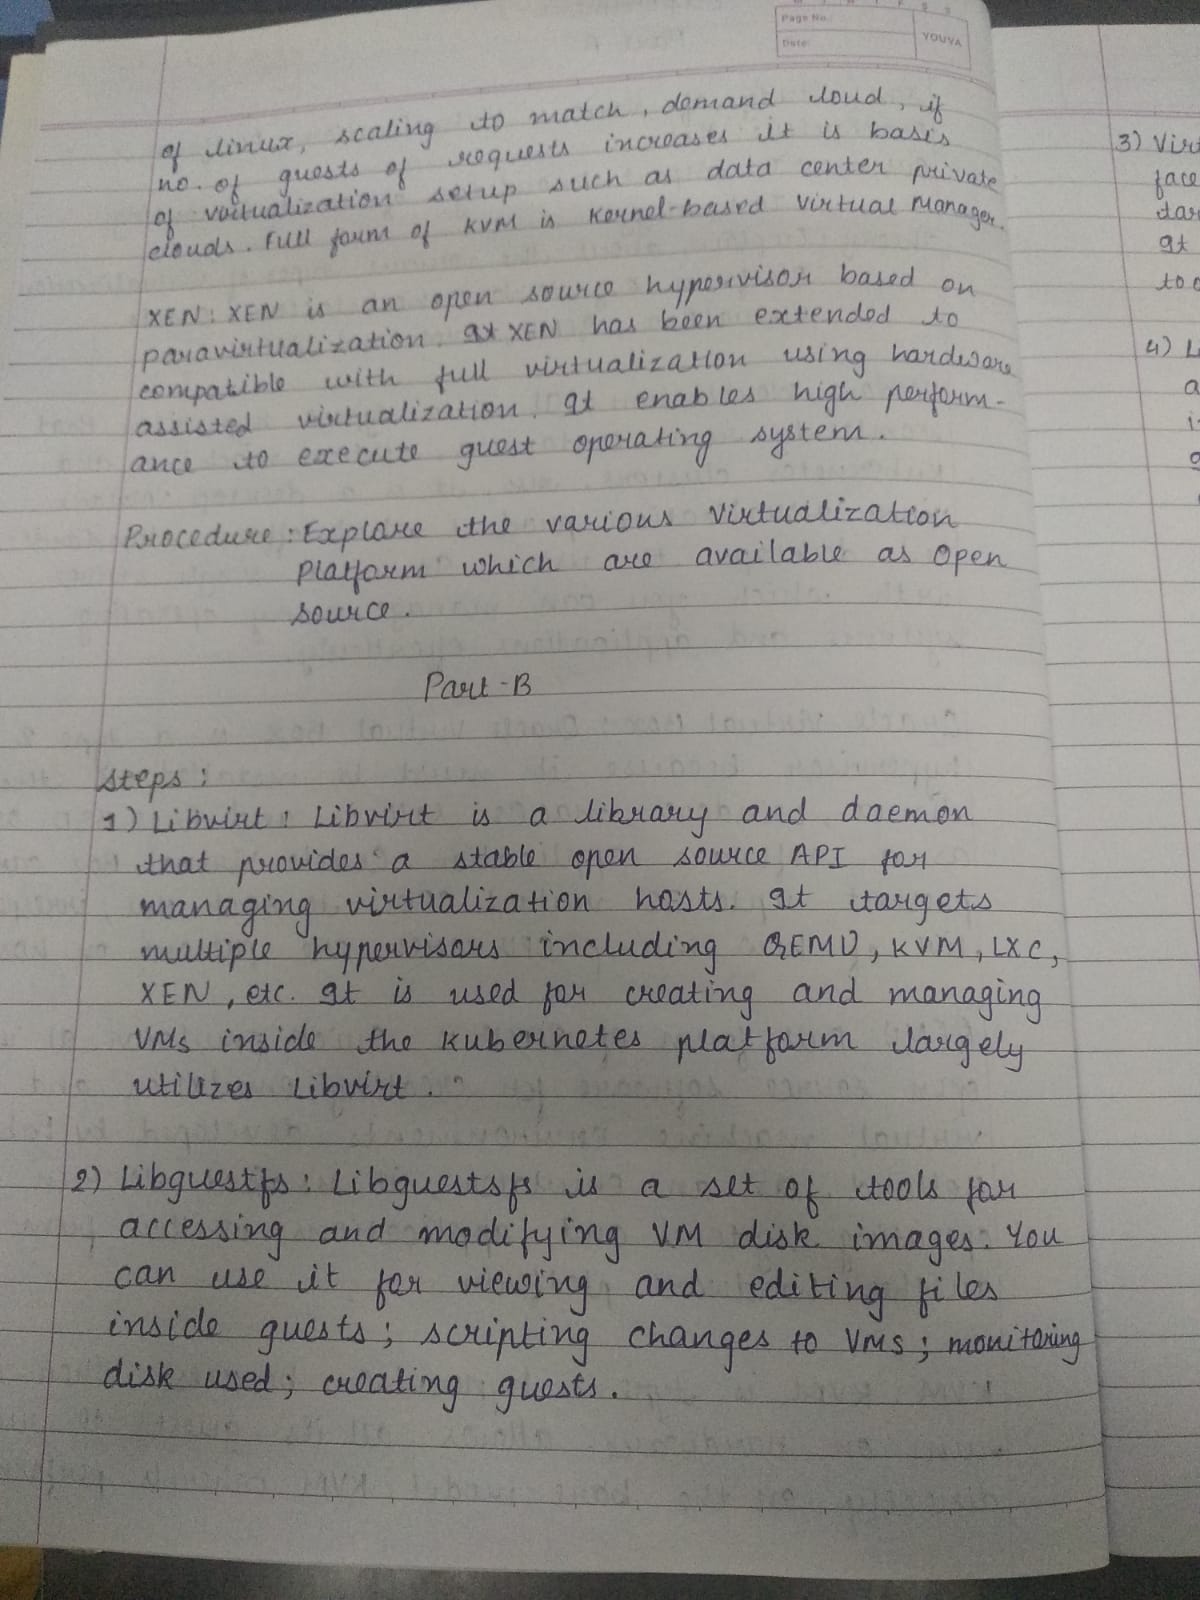 Page No.
Date:
YOUVA
of linux, scaling to match, demand loud, if
no. of guests of requests increases it is basis
of virtualization setup such as data center private
clouds. Full form of KVM is Kernel-based Virtual Manager.
XEN: XEN is an open source hypervisor based on
paravirtualization. It XEN has been extended to
compatible with full virtualization using hardware
assisted virtualization. It enables high perform-
ance to execute guest operating system.
Procedure: Explore the various Virtualization
Platform which are available as Open
source.
Part-B
Steps:
1) Libvirt: Libvirt is a library and daemon
that provides a stable open source API for
managing virtualization hosts. It targets
multiple hypervisors including QEMU, KVM, LXC,
XEN, etc. It is used for creating and managing
VMs inside the Kubernetes platform largely
utilizes Libvirt.
2) Libguestfs: Libguestsfs is a set of tools for
accessing and modifying VM disk images. You
can use it for viewing and editing files
inside guests; scripting changes to VMs; monitoring
disk used; creating guests.
3) Virt
face
4) L